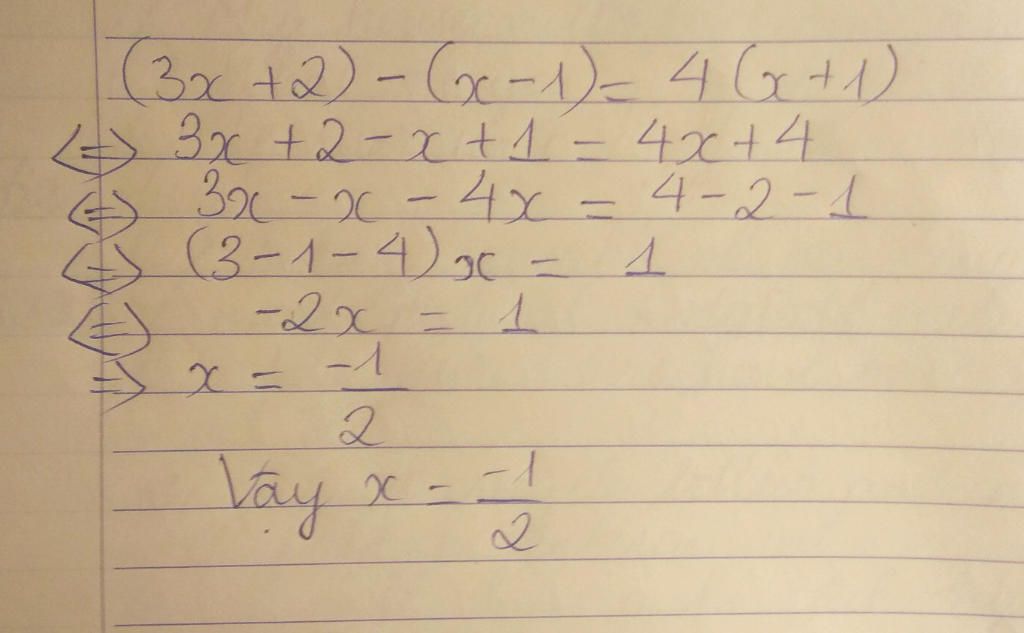 (3x + 2) - (x - 1) = 4(x + 1)
<=> 3x + 2 - x + 1 = 4x + 4
<=> 3x - x - 4x = 4 - 2 - 1
<=> (3 - 1 - 4)x = 1
<=> -2x = 1
=> x = -1/2
Vậy x = -1/2